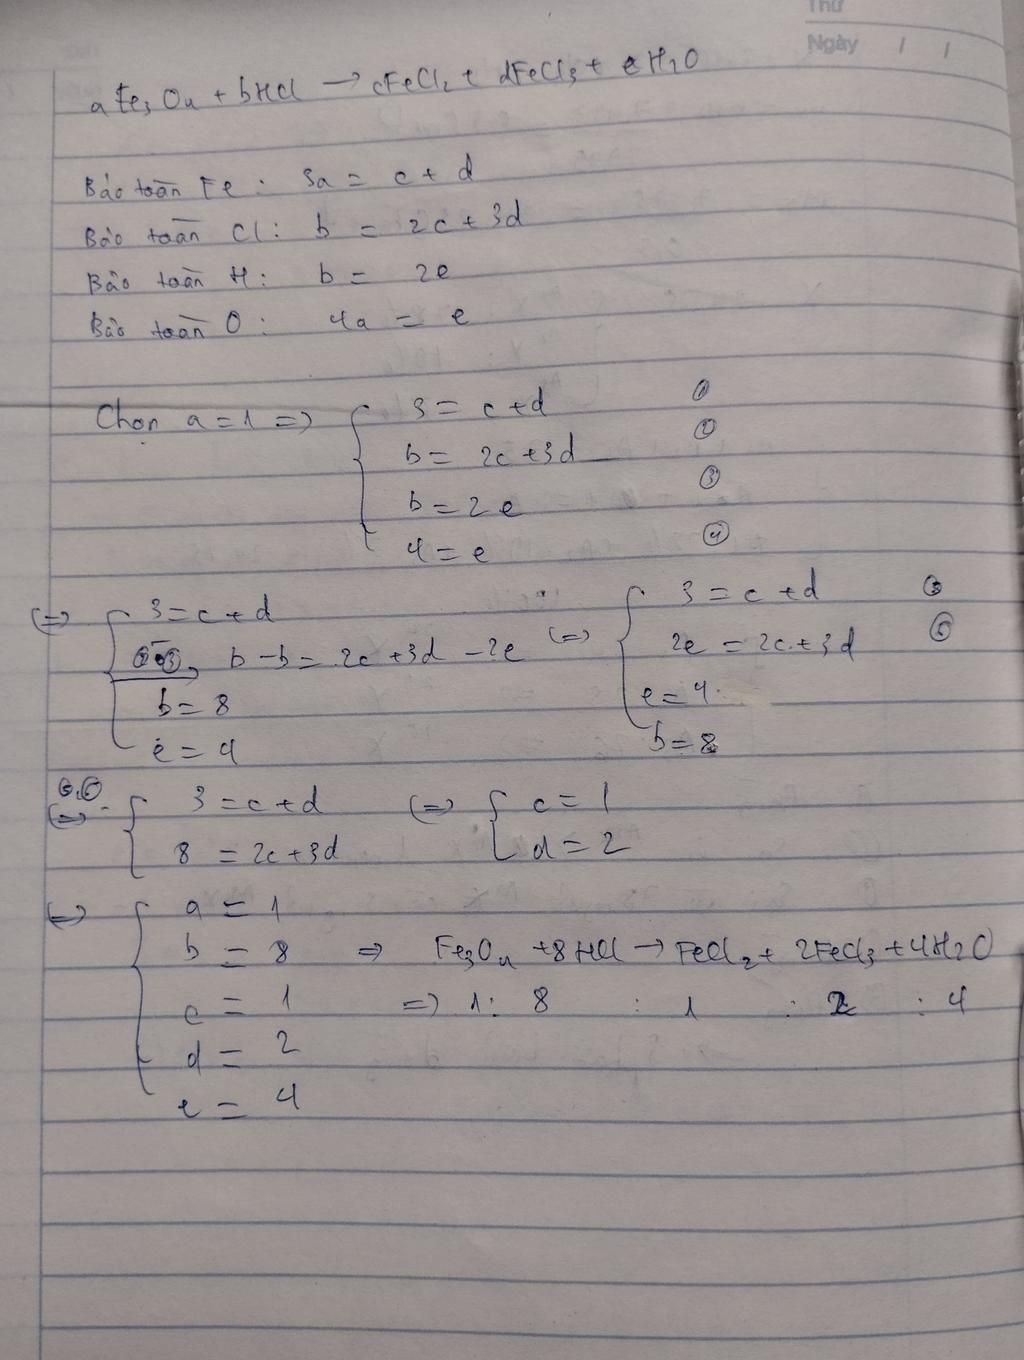 Thứ
Ngày / /
a Fe₃O₄ + bHCl → cFeCl₂ + dFeCl₃ + eH₂O
Bảo toàn Fe : 3a = c + d
Bảo toàn Cl : b = 2c + 3d
Bảo toàn H : b = 2e
Bảo toàn O : 4a = e
Chọn a = 1 => { 3 = c + d ①
b = 2c + 3d ②
b = 2e ③
4 = e ④
<=> { 3 = c + d <=> { 3 = c + d ⑤
②-③, b - b = 2c + 3d - 2e 2e = 2c + 3d ⑥
b = 8 e = 4
e = 4 b = 8
⑤,⑥
<=> { 3 = c + d <=> { c = 1
8 = 2c + 3d d = 2
<=> { a = 1
b = 8 => Fe₃O₄ + 8HCl → FeCl₂ + 2FeCl₃ + 4H₂O
c = 1 => 1 : 8 : 1 : 2 : 4
d = 2
e = 4